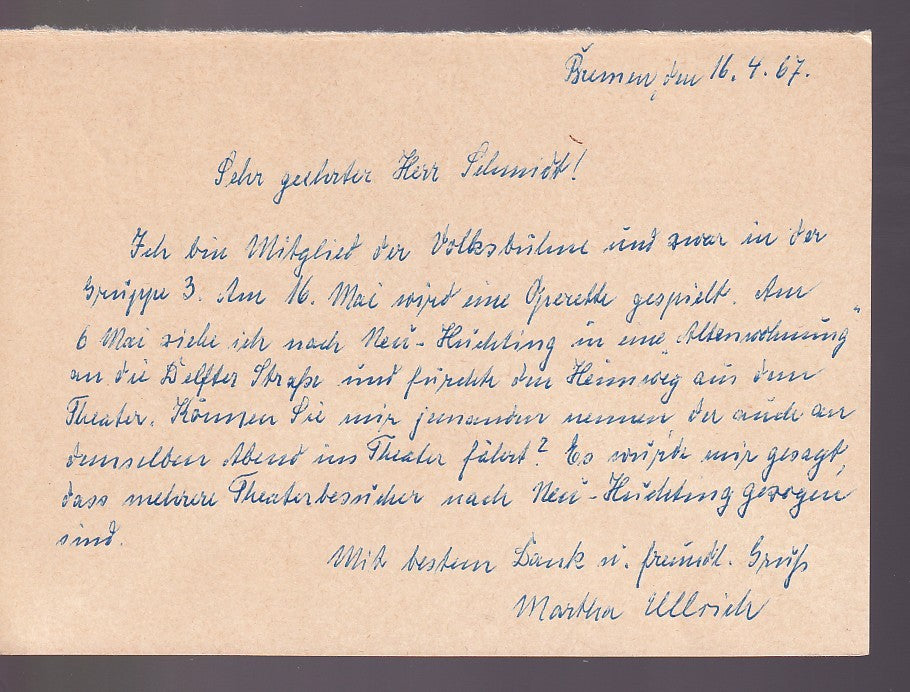 Bremen, den 16.4.67.
Sehr geehrter Herr Schmidt!
Ich bin Mitglied der Volksbühne und zwar in der
Gruppe 3. Am 16. Mai wird eine Operette gespielt. Am
6 Mai ziehe ich nach Neu-Huchting in eine „Altenwohnung“
an die Delfter Straße und fürchte den Heimweg aus dem
Theater. Können Sie mir jemanden nennen, der auch an
demselben Abend ins Theater fährt? Es wurde mir gesagt,
dass mehrere Theaterbesucher nach Neu-Huchting gezogen
sind.
Mit bestem Dank u. freundl. Gruß
Martha Ullrich